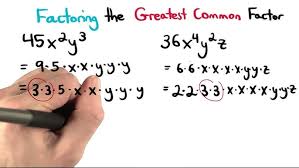 Factoring the Greatest Common Factor
45x²y³
= 9·5·x·x·y·y·y
= 3·3·5·x·x·y·y·y
36x⁴y²z
= 6·6·x·x·x·x·y·y·z
= 2·2·3·3·x·x·x·x·y·y·z